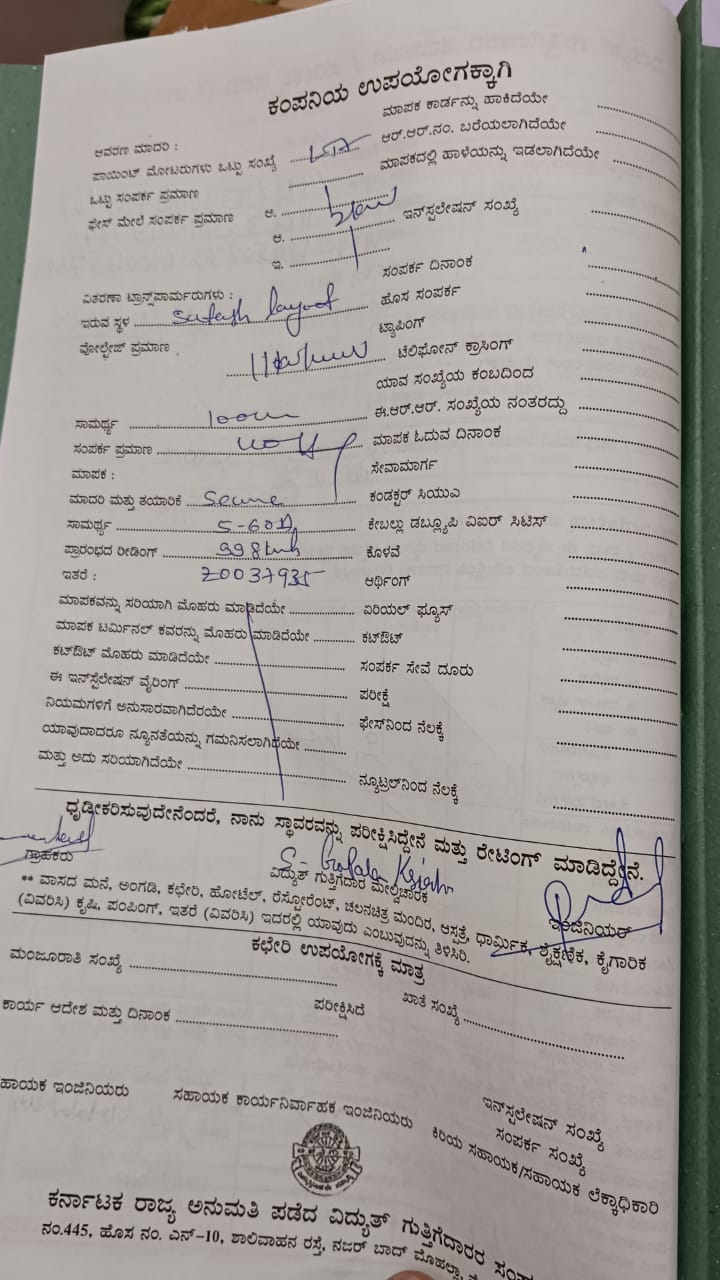 ಕಂಪನಿಯ ಉಪಯೋಗಕ್ಕಾಗಿ
ಆವರಣ ಮಾದರಿ : ಮಾಪಕ ಕಾರ್ಡನ್ನು ಹಾಕಿದೆಯೇ
ಪಾಯಿಂಟ್ ಮೋಟರುಗಳು ಒಟ್ಟು ಸಂಖ್ಯೆ ಆರ್.ಆರ್.ನಂ. ಬರೆಯಲಾಗಿದೆಯೇ
ಒಟ್ಟು ಸಂಪರ್ಕ ಪ್ರಮಾಣ ಮಾಪಕದಲ್ಲಿ ಹಾಳೆಯನ್ನು ಇಡಲಾಗಿದೆಯೇ
ಫೇಸ್ ಮೇಲೆ ಸಂಪರ್ಕ ಪ್ರಮಾಣ ಅ.
ಆ. ಇನ್‌ಸ್ಟಲೇಷನ್ ಸಂಖ್ಯೆ
ಇ.
ವಿತರಣಾ ಟ್ರಾನ್ಸ್‌ಫಾರ್ಮರುಗಳು : ಸಂಪರ್ಕ ದಿನಾಂಕ
ಇರುವ ಸ್ಥಳ Satesh layout ಹೊಸ ಸಂಪರ್ಕ
ವೋಲ್ಟೇಜ್ ಪ್ರಮಾಣ ಟ್ಯಾಪಿಂಗ್
ಟೆಲಿಫೋನ್ ಕ್ರಾಸಿಂಗ್
ಯಾವ ಸಂಖ್ಯೆಯ ಕಂಬದಿಂದ
ಸಾಮರ್ಥ್ಯ ಈ.ಆರ್.ಆರ್. ಸಂಖ್ಯೆಯ ನಂತರದ್ದು
ಸಂಪರ್ಕ ಪ್ರಮಾಣ ಮಾಪಕ ಓದುವ ದಿನಾಂಕ
ಮಾಪಕ : ಸೇವಾಮಾರ್ಗ
ಮಾದರಿ ಮತ್ತು ತಯಾರಿಕೆ Secure ಕಂಡಕ್ಟರ್ ಸಿಯುಎ
ಸಾಮರ್ಥ್ಯ 5-60A ಕೇಬಲ್ಲು ಡಬ್ಲ್ಯೂಪಿ ವಿಐರ್ ಸಿಟಿಸ್
ಪ್ರಾರಂಭದ ರೀಡಿಂಗ್ ಕೊಳವೆ
ಇತರೆ : 20037935 ಆರ್ಥಿಂಗ್
ಮಾಪಕವನ್ನು ಸರಿಯಾಗಿ ಮೊಹರು ಮಾಡಿದೆಯೇ ಏರಿಯಲ್ ಫ್ಯೂಸ್
ಮಾಪಕ ಟರ್ಮಿನಲ್ ಕವರನ್ನು ಮೊಹರು ಮಾಡಿದೆಯೇ ಕಟ್‌ಔಟ್
ಕಟ್‌ಔಟ್ ಮೊಹರು ಮಾಡಿದೆಯೇ ಸಂಪರ್ಕ ಸೇವೆ ದೂರು
ಈ ಇನ್‌ಸ್ಟೆಲೇಷನ್ ವೈರಿಂಗ್ ಪರೀಕ್ಷೆ
ನಿಯಮಗಳಿಗೆ ಅನುಸಾರವಾಗಿದೆರಯೇ ಫೇಸ್‌ನಿಂದ ನೆಲಕ್ಕೆ
ಯಾವುದಾದರೂ ನ್ಯೂನತೆಯನ್ನು ಗಮನಿಸಲಾಗಿದೆಯೇ
ಮತ್ತು ಅದು ಸರಿಯಾಗಿದೆಯೇ ನ್ಯೂಟ್ರಲ್‌ನಿಂದ ನೆಲಕ್ಕೆ
ಧೃಡೀಕರಿಸುವುದೇನೆಂದರೆ, ನಾನು ಸ್ಥಾವರವನ್ನು ಪರೀಕ್ಷಿಸಿದ್ದೇನೆ ಮತ್ತು ರೇಟಿಂಗ್ ಮಾಡಿದ್ದೇನೆ.
ಗ್ರಾಹಕರು ವಿದ್ಯುತ್ ಗುತ್ತಿಗೆದಾರ ಮೇಲ್ವಿಚಾರಕ ಇಂಜಿನಿಯರ್
** ವಾಸದ ಮನೆ, ಅಂಗಡಿ, ಕಛೇರಿ, ಹೋಟೆಲ್, ರೆಸ್ಟೋರೆಂಟ್, ಚಲನಚಿತ್ರ ಮಂದಿರ, ಆಸ್ಪತ್ರೆ, ಧಾರ್ಮಿಕ, ಶೈಕ್ಷಣಿಕ, ಕೈಗಾರಿಕ
(ವಿವರಿಸಿ) ಕೃಷಿ, ಪಂಪಿಂಗ್, ಇತರೆ (ವಿವರಿಸಿ) ಇದರಲ್ಲಿ ಯಾವುದು ಎಂಬುವುದನ್ನು ತಿಳಿಸಿರಿ.
ಕಛೇರಿ ಉಪಯೋಗಕ್ಕೆ ಮಾತ್ರ
ಮಂಜೂರಾತಿ ಸಂಖ್ಯೆ ಖಾತೆ ಸಂಖ್ಯೆ
ಕಾರ್ಯ ಆದೇಶ ಮತ್ತು ದಿನಾಂಕ ಪರೀಕ್ಷಿಸಿದೆ
ಹಾಯಕ ಇಂಜಿನಿಯರು ಸಹಾಯಕ ಕಾರ್ಯನಿರ್ವಾಹಕ ಇಂಜಿನಿಯರು ಇನ್‌ಸ್ಟಲೇಷನ್ ಸಂಖ್ಯೆ
ಸಂಪರ್ಕ ಸಂಖ್ಯೆ
ಕಿರಿಯ ಸಹಾಯಕ/ಸಹಾಯಕ ಲೆಕ್ಕಾಧಿಕಾರಿ
ಕರ್ನಾಟಕ ರಾಜ್ಯ ಅನುಮತಿ ಪಡೆದ ವಿದ್ಯುತ್ ಗುತ್ತಿಗೆದಾರರ
ನಂ.445, ಹೊಸ ನಂ. ಎನ್-10, ಶಾಲಿವಾಹನ ರಸ್ತೆ, ನಜರ್ ಬಾದ್ ಮೊಹಲ್ಲಾ,